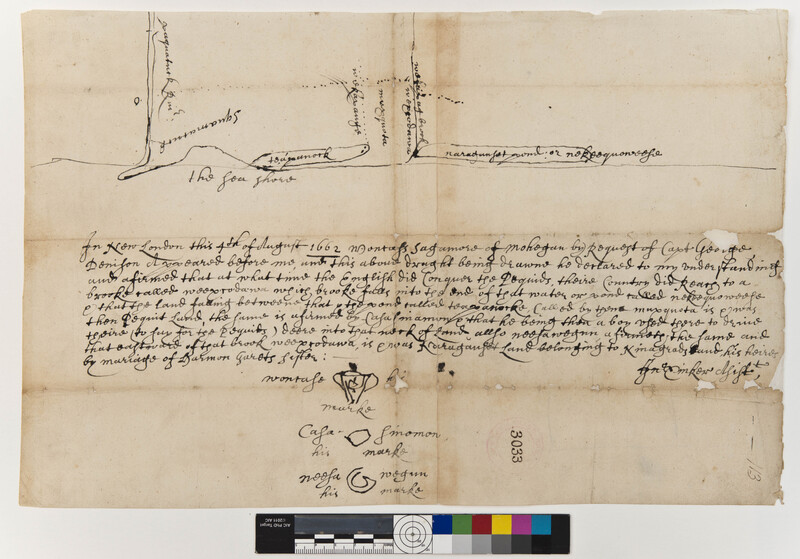 Squamacutt
wekapauge
muxquota
wexcodawa
teapanock
naraganset pond: or nekeequoweese
the sea shore
In New London this 4th of August 1662 Wontass Sagamore of Mohegan by Request of Capt George
Denison Apeared before me and this above draght being drawne he declared to my understanding
and afirmed that at what time the English did Conquer the Pequids, theire Country did Reach to a
brooke called weexcodawa which brooke falls into the end of that water or pond called nekequoweese
& that the land lyeing betweene that & the pond called teapanocke Called by them muxquota is & was
then Pequit Land the same is afirmed by Casasinamon & that he being then a boy used there to drive
theire (to say for the Pequits) deere into that neck of Land, allso neesawegun afirmeth the same and
that eastward of that brook weexcodawa is & was Naraganset Land belonging to Ninagrads and his heires
by mariage of Harmon Garets sister:
Jn Tinker Asistt
wontase his
marke
Casa- sinomon
his marke
neesa wegun
his marke
3033
113